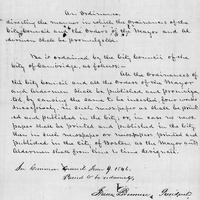 An Ordinance,
directing the manner in which the Ordinances of the
City Council and the Orders of the Mayor and Al
dermen shall be promulgated.
Be it ordained by the City Council of the
City of Cambridge, as follows:
All the Ordinances of
the City Council and all the Orders of the Mayor
and Aldermen shall be published and promulga
ted by causing the same to be inserted four weeks
successively in such newspaper as shall be print
ed and published in the City; or, in case no news
paper shall be printed and published in the City
then in such newspaper or newspapers printed and
published in the City of Boston as the Mayor and
Aldermen shall from time to time designate.
In Common Council June 9, 1846.
Passed to be ordained,
Isaac Livermore, President